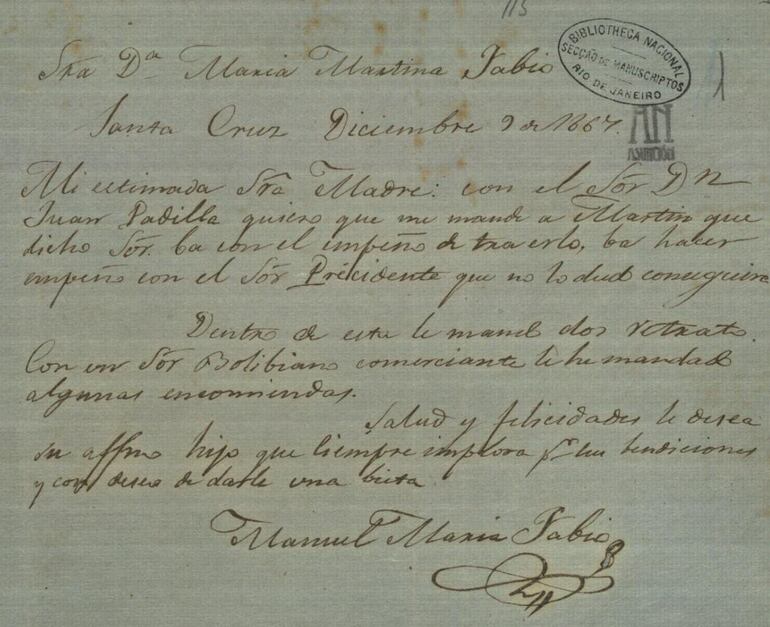 115
BIBLIOTHECA NACIONAL
SECCÃO DE MANUSCRIPTOS
RIO DE JANEIRO
AN
ASUNCIÓN
Sra Da Maria Martina Fabio
Santa Cruz Diciembre 9 de 1867.
Mi estimada Sra Madre: con el Sór Dn
Juan Padilla quiero que me mande a Martin que
dicho Sór. ba con el empeño de traerlo, ba hacer
empeño con el Sór Precidente que no lo dudo conseguira
Dentro de esta le mando dos retrato.
Con un Sór Bolibiano comerciante le he mandado
algunas encomiendas.
Salud y felicidades le desea
su affmo hijo que siempre implora sus bendiciones
y con deseo de darle una bista.
Manuel Maria Fabio